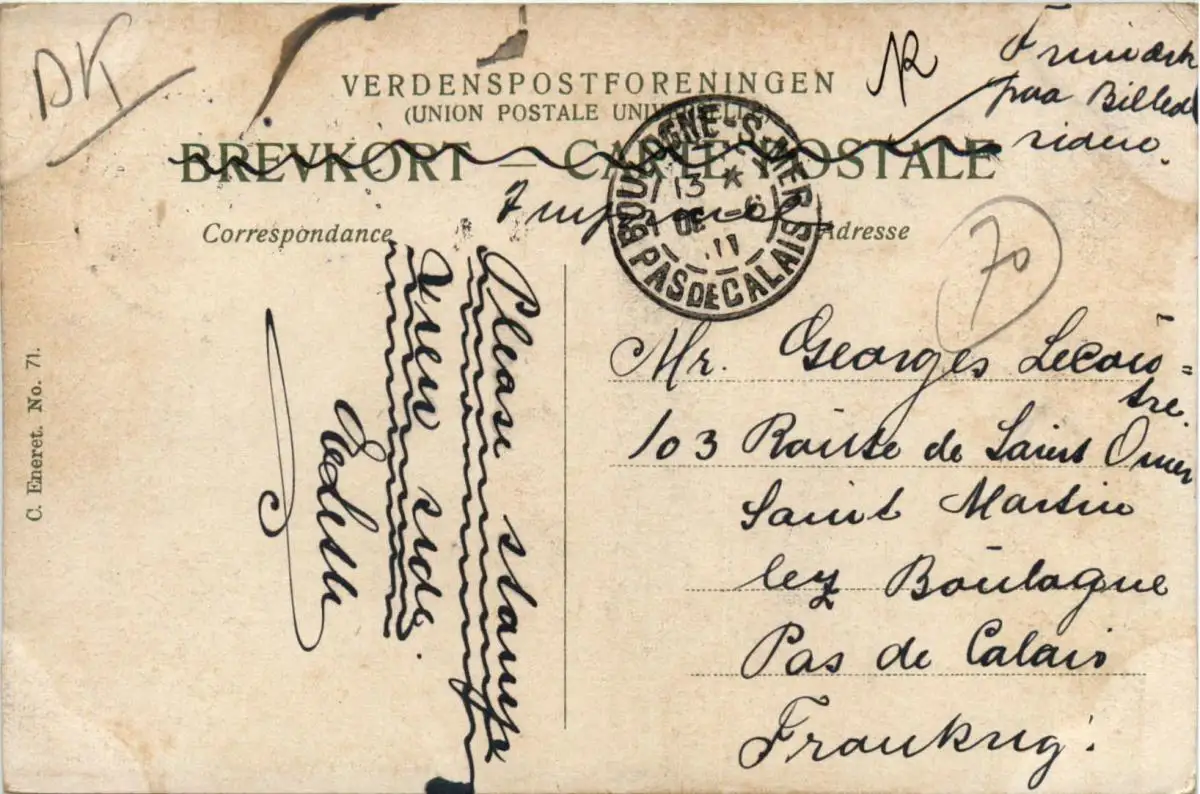 DK
VERDENSPOSTFORENINGEN
(UNION POSTALE UNIVERSELLE)
BREVKORT — CARTE POSTALE
Frimærk
paa Billed
siden.
Correspondance
Adresse
BOULOGNE-S-MER
13 *
DE -6
11
PAS DE CALAIS
70
Please stamp
view side.
C. Eneret. No. 71.
Mr. Georges Lecoin=
tre
103 Route de Saint Omer
Saint Martin
lez Boulogne
Pas de Calais
Frankrig.